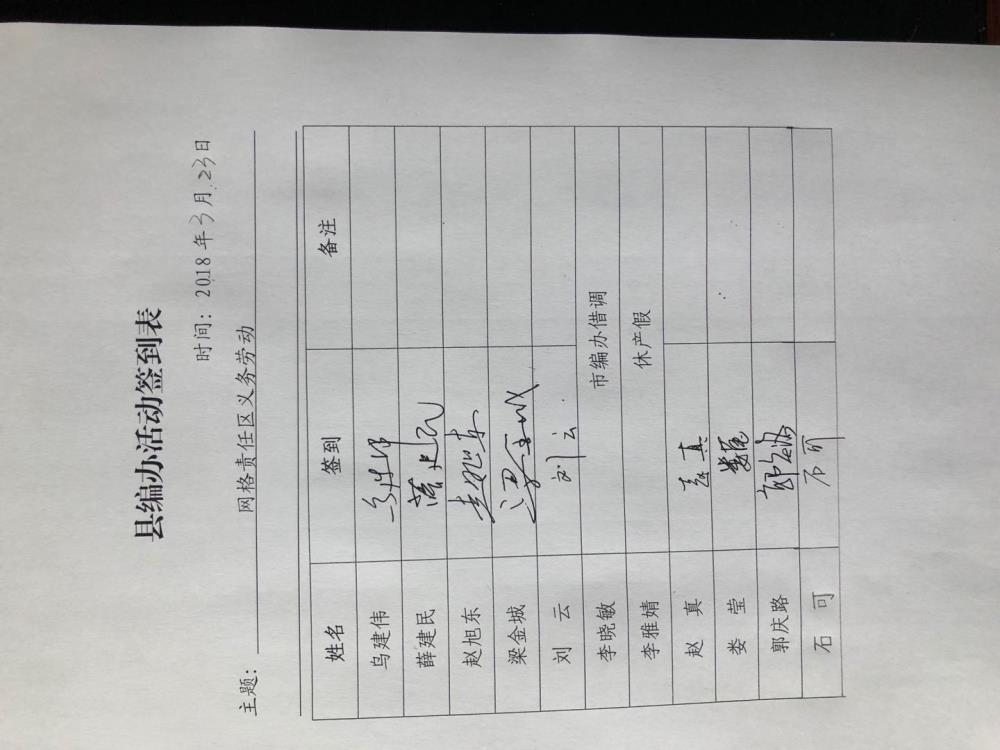 县编办活动签到表
时间：2018年3月23日
主题：网格责任区义务劳动
姓名 签到 备注
乌建伟 乌建伟
薛建民 薛建民
赵旭东 赵旭东
梁金城 梁金城
刘云 刘云
李晓敏 市编办借调
李雅婧 休产假
赵真 赵真
娄莹 娄莹
郭庆路 郭庆路
石可 石可